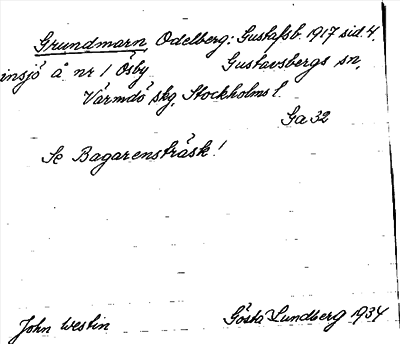 Grundmarn, Odelberg: Gustafsb. 1917 sid. 4.
insjö å nr 1 Ösby Gustavsbergs sn,
Värmdö skg, Stockholms l.
Ga 32
Se Bagarensträsk!
John Westin Gösta Lundberg 1934